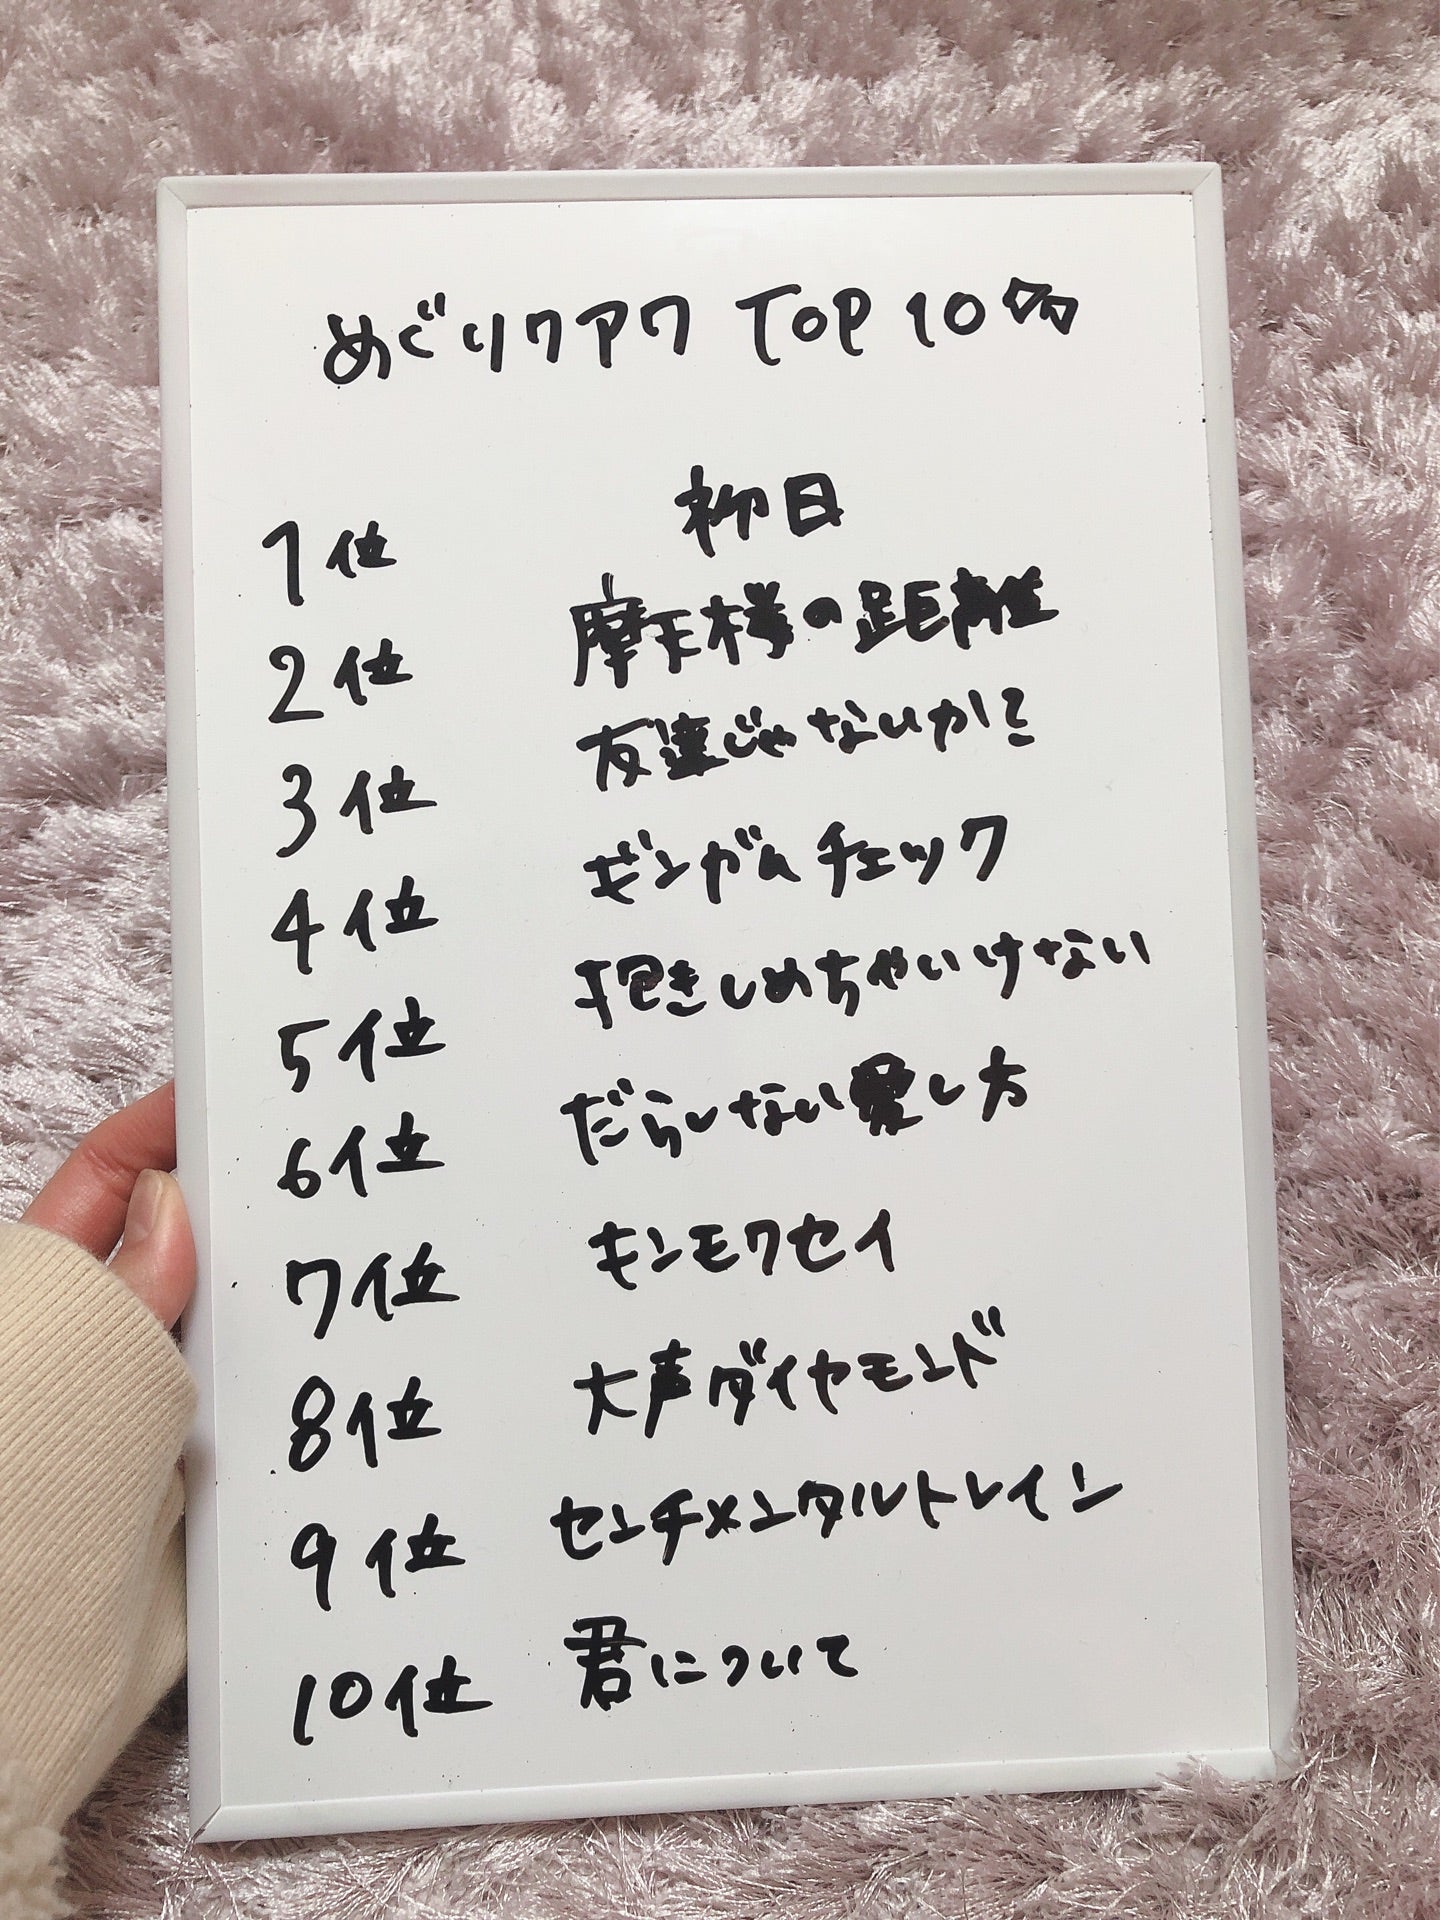 めぐリクアワ TOP 10
1位 初日
2位 摩天楼の距離
3位 友達じゃないか?
4位 ギンガムチェック
5位 抱きしめちゃいけない
6位 だらしない愛し方
7位 キンモクセイ
8位 大声ダイヤモンド
9位 センチメンタルトレイン
10位 君について